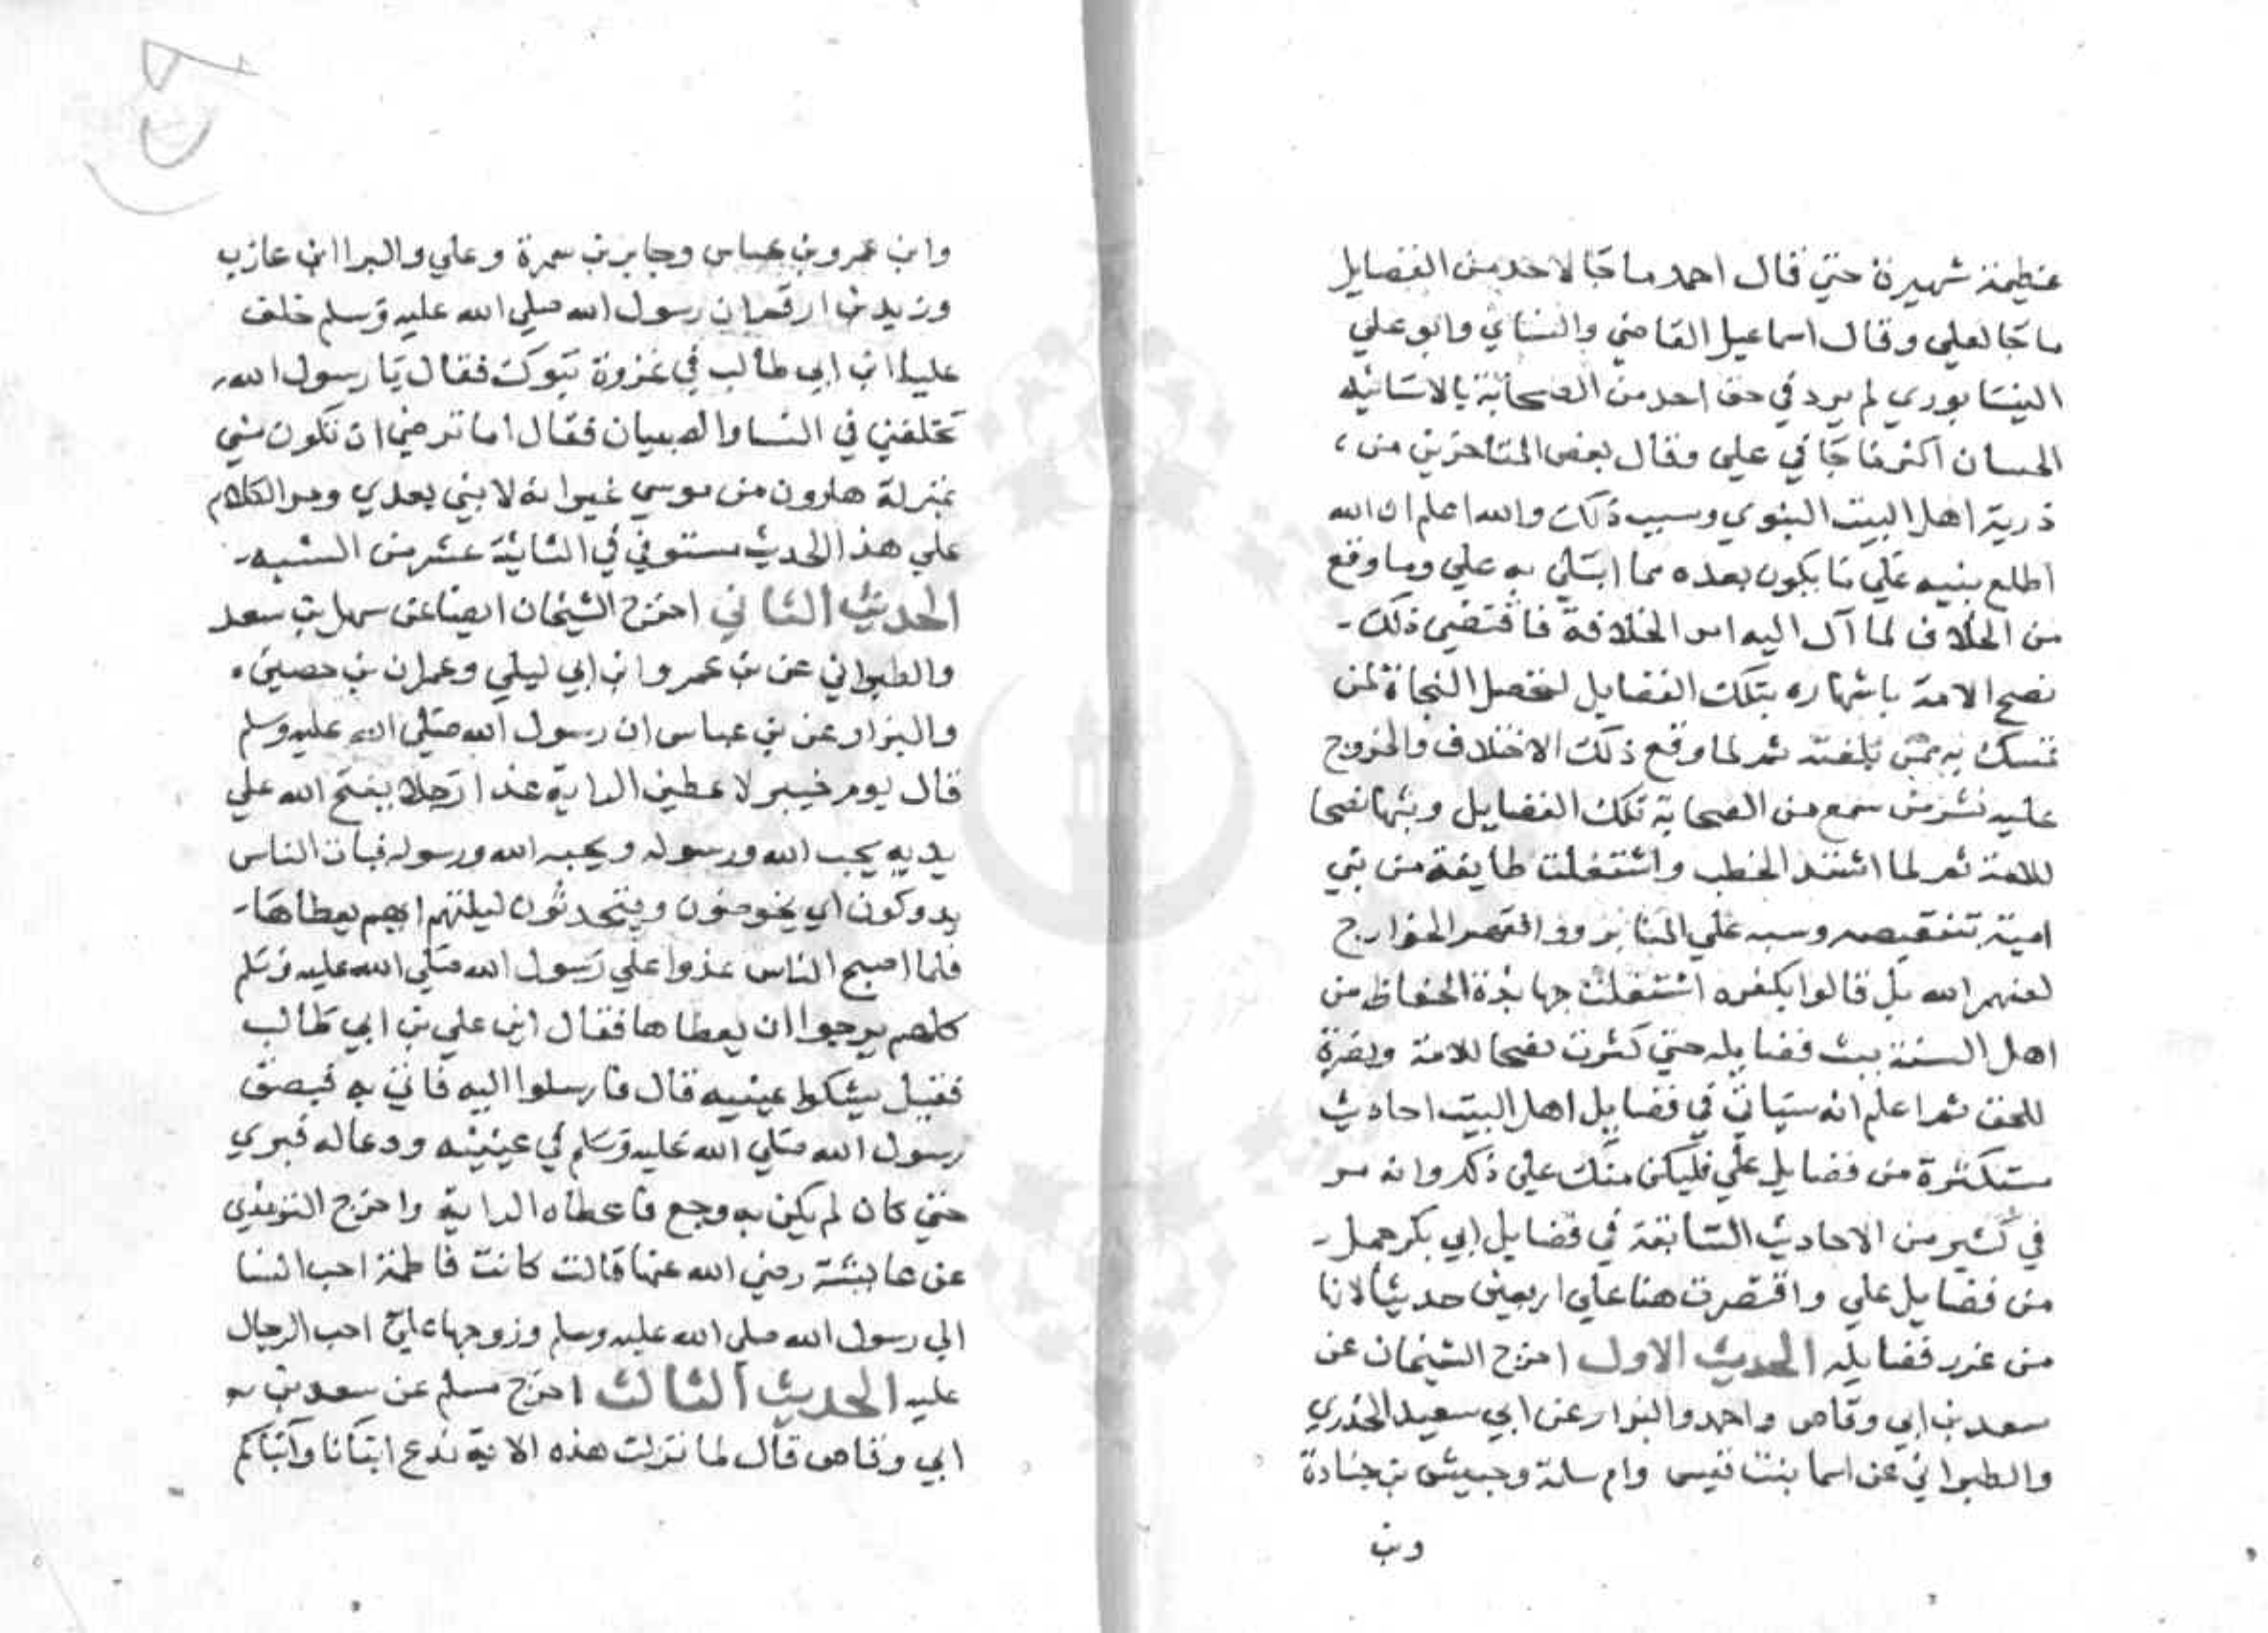 عظيمة شهيرة حتي قال احمد ما جا لاحد من الفضايل
ما جا لعلي وقال اسماعيل القاضي والنساي وابو علي
النيسابوري لم يرد في حق احد من الصحابة بالاسانيد
الحسان اكثر ما جا في علي وقال بعض المتاخرين من
ذرية اهل البيت النبوي وسبب ذلك والله اعلم ان الله
اطلع نبيه علي ما يكون بعده مما ابتلي به علي وما وقع
من الخلاف لما آل اليه امر الخلافة فاقتضي ذلك
نصح الامة باشهاره بتلك الفضايل لتحصل النجاة لمن
تمسك به ممن بلغته ثم لما وقع ذلك الاختلاف والخروج
عليه نشر من سمع من الصحابة تلك الفضايل وبثها نصحا
للامة ثم لما اشتد الخطب واشتغلت طايفة من بني
امية بتنقيصه وسبه علي المنابر ووافقهم الخوارج
لعنهم الله بل قالوا بكفره اشتغلت جهابذة الحفاظ من
اهل السنة ببث فضايله حتي كثرت نصحا للامة ونصرة
للحق ثم اعلم انه سياتي في فضايل اهل البيت احاديث
مستكثرة من فضايل علي فليكن منك علي ذكر وانه مر
في كثير من الاحاديث السابقة في فضايل ابي بكر جمل
من فضايل علي واقتصرت هنا علي اربعين حديثا لانها
من غرر فضايله الحديث الاول اخرج الشيخان عن
سعد بن ابي وقاص واحمد والبزار عن ابي سعيد الخدري
والطبراني عن اسما بنت قيس وام سلمة وحبيش بن جنادة
وبن
وابن عمر وبن عباس وجابر بن سمرة وعلي والبرا ابن عازب
وزيد بن ارقم ان رسول الله صلي الله عليه وسلم خلف
عليا ابن ابي طالب في غزوة تبوك فقال يا رسول الله
تخلفني في النسا والصبيان فقال اما ترضي ان تكون مني
بمنزلة هارون من موسي غير انه لا نبي بعدي ومر الكلام
علي هذا الحديث مستوفي في الثانية عشر من الشبه
الحديث الثاني اخرج الشيخان ايضا عن سهل بن سعد
والطبراني عن بن عمر وابن ابي ليلي وعمران بن حصين
والبزار عن بن عباس ان رسول الله صلي الله عليه وسلم
قال يوم خيبر لاعطين الراية غدا رجلا يفتح الله علي
يديه يحب الله ورسوله ويحبه الله ورسوله فبات الناس
يدوكون اي يخوضون ويتحدثون ليلتهم ايهم يعطاها
فلما اصبح الناس غدوا علي رسول الله صلي الله عليه وسلم
كلهم يرجوا ان يعطاها فقال اين علي بن ابي طالب
فقيل يشكوا عينيه قال فارسلوا اليه فاتي به فبصق
رسول الله صلي الله عليه وسلم في عينيه ودعا له فبري
حتي كان لم يكن به وجع فاعطاه الراية واخرج الترمذي
عن عايشة رضي الله عنها قالت كانت فاطمة احب النسا
الي رسول الله صلي الله عليه وسلم وزوجها علي احب الرجال
عليه الحديث الثالث اخرج مسلم عن سعد بن
ابي وقاص قال لما نزلت هذه الاية ندع ابنانا وابناكم